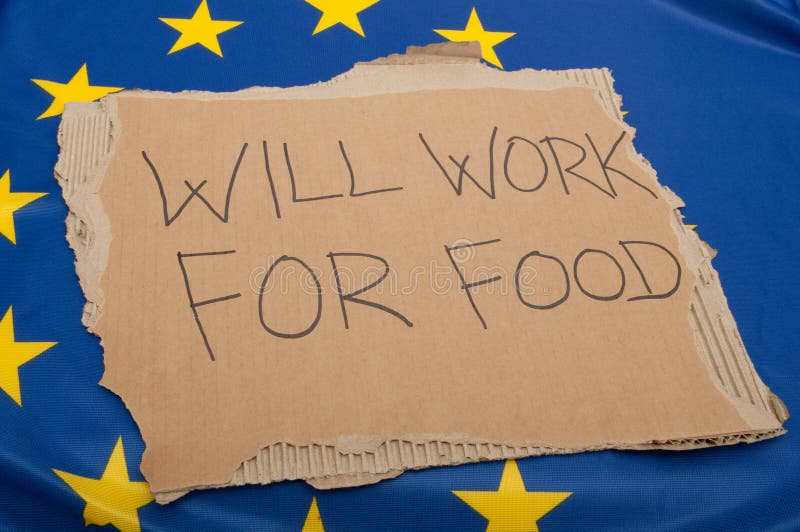 WILL WORK
FOR FOOD
dreamstime